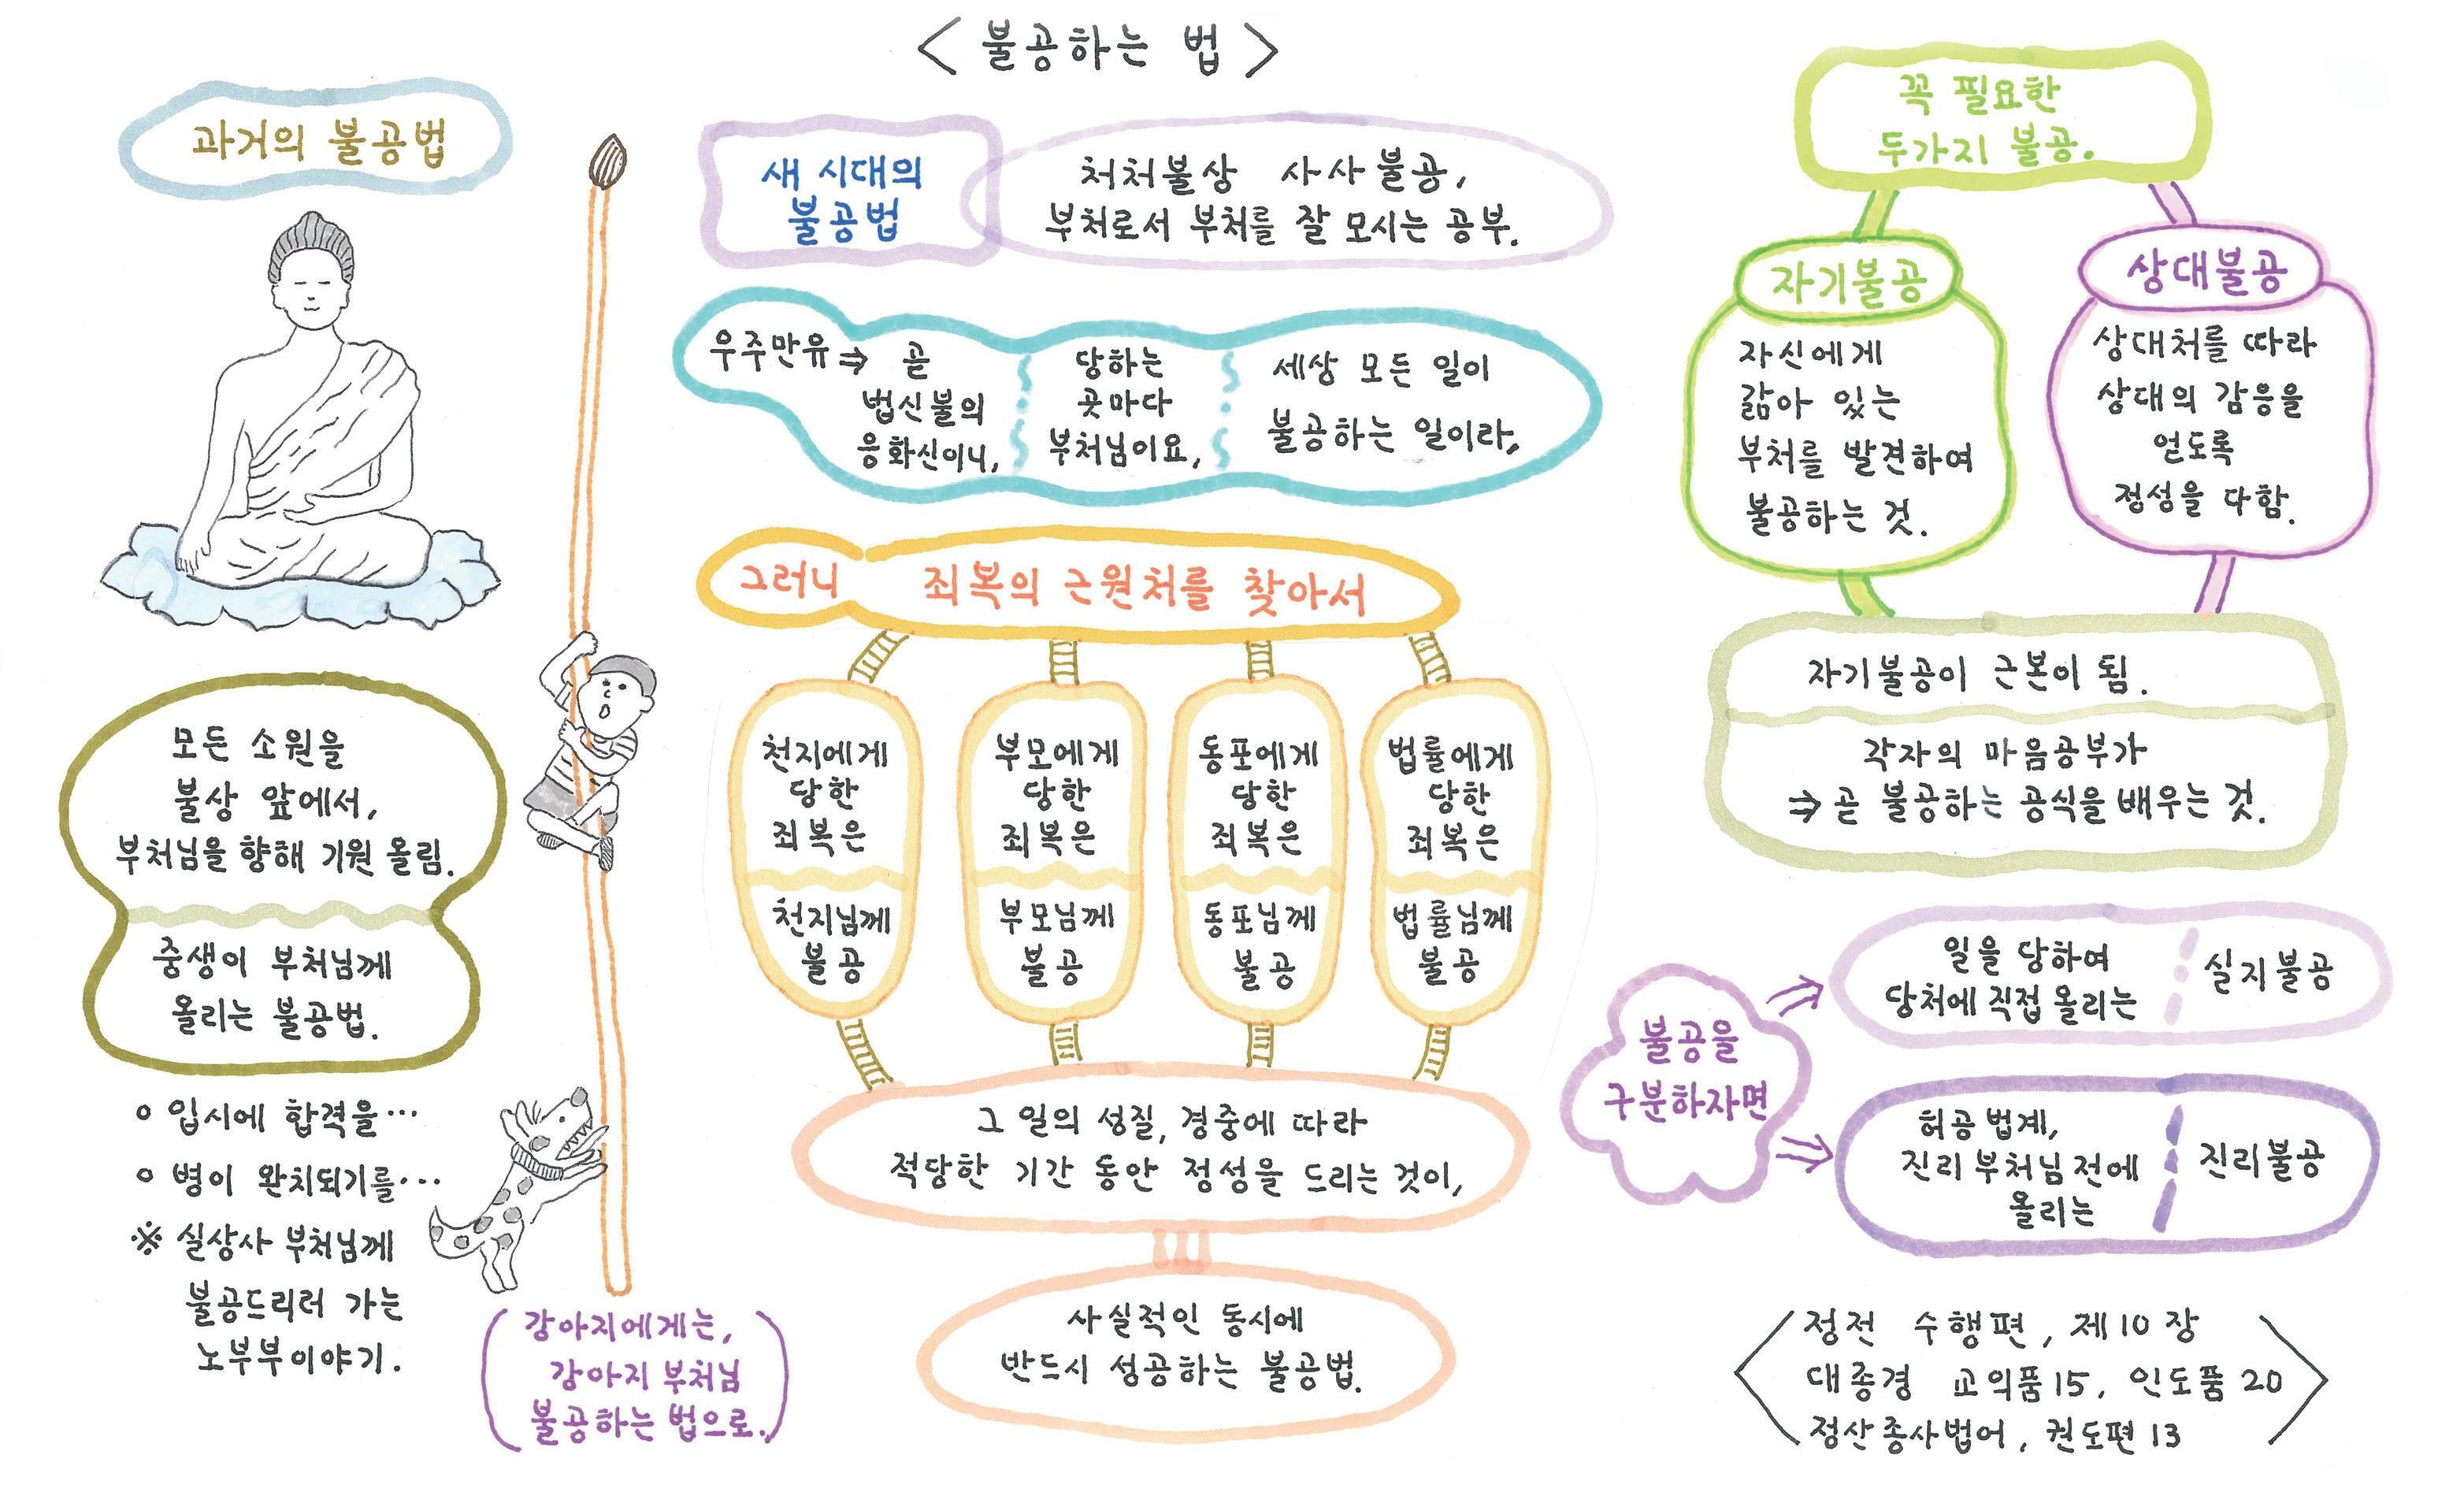 < 불공하는 법 >
과거의 불공법
모든 소원을
불상 앞에서,
부처님을 향해 기원 올림.
중생이 부처님께
올리는 불공법.
o 입시에 합격을…
o 병이 완치되기를…
※ 실상사 부처님께
불공드리러 가는
노부부이야기.
(강아지에게는,
강아지 부처님
불공하는 법으로.)
새 시대의
불공법
처처불상 사사불공,
부처로서 부처를 잘 모시는 공부.
우주만유 ⇒ 곧
법신불의
응화신이니,
당하는
곳마다
부처님이요,
세상 모든 일이
불공하는 일이라,
그러니 죄복의 근원처를 찾아서
천지에게
당한
죄복은
천지님께
불공
부모에게
당한
죄복은
부모님께
불공
동포에게
당한
죄복은
동포님께
불공
법률에게
당한
죄복은
법률님께
불공
그 일의 성질, 경중에 따라
적당한 기간 동안 정성을 드리는 것이,
사실적인 동시에
반드시 성공하는 불공법.
꼭 필요한
두가지 불공.
자기불공
자신에게
갊아 있는
부처를 발견하여
불공하는 것.
상대불공
상대처를 따라
상대의 감응을
얻도록
정성을 다함.
자기불공이 근본이 됨.
각자의 마음공부가
⇒ 곧 불공하는 공식을 배우는 것.
불공을
구분하자면
일을 당하여
당처에 직접 올리는
실지불공
허공법계,
진리부처님전에
올리는
진리불공
정전 수행편, 제10장
대종경 교의품15, 인도품20
정산종사법어, 권도편13